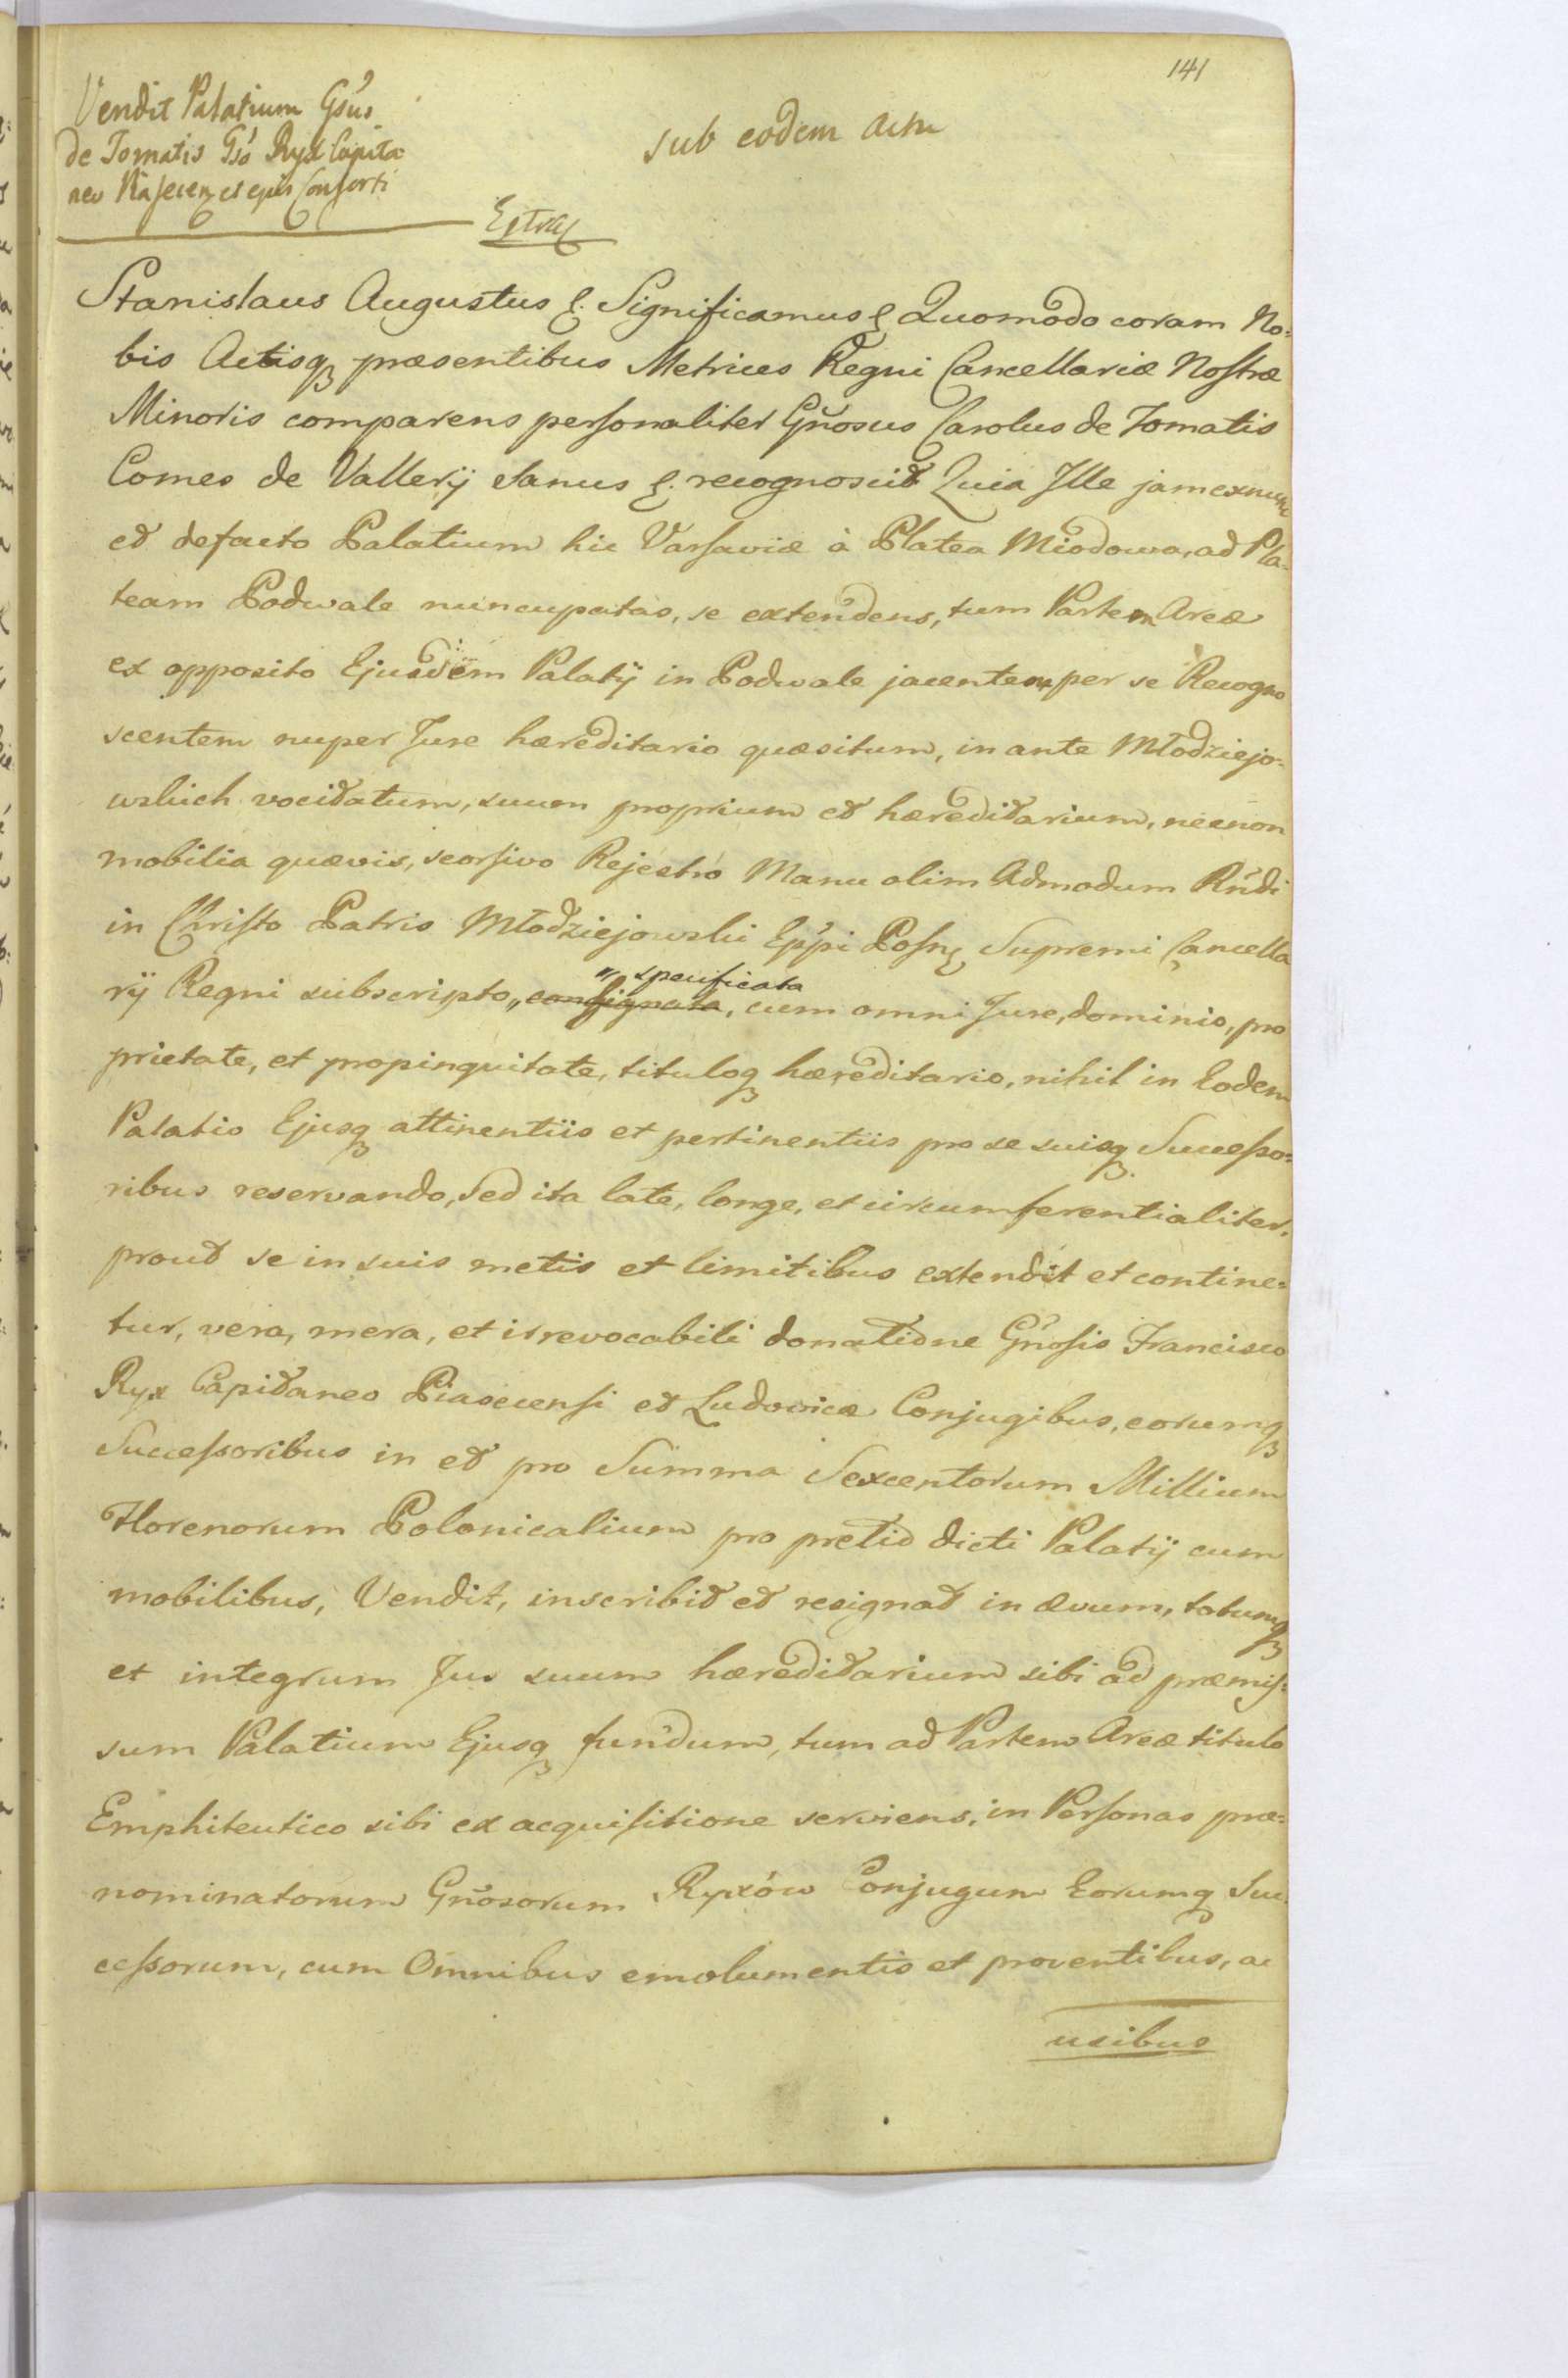 141
Vendit Palatium Gsus
de Tomatis Gso Ryx Capita
neo Piasecen et ejus Consorti
sub eodem Actu
Extrad
Stanislaus Augustus &. Significamus & Quomodo coram No:
bis Actisq præsentibus Metrices Regni Cancellariæ Nostræ
Minoris comparens personaliter Gnosus Carolus de Tomatis
Comes de Vallerÿ sanus &. recognoscit Quia Ille jam exnunc
et defacto Palatium hic Varsaviæ à Platea Miodowa, ad Pla-
team Podwale nuncupatas, se extendens, tum Partem Areæ
ex opposito Ejusdem Palatÿ in Podwale jacentem per se Recogno
scentem nuper Jure hæreditario quæsitum, in ante Młodziejo-
wskich vocitatum, suum proprium et hæreditarium, necnon
mobilia quævis, seorsivo Rejestro Manu olim Admodum Rndi
in Christo Patris Młodziejowski Eppi Posn Supremi Cancella
rÿ Regni subscripto,, consignata, cum omni Jure, dominio, pro
,, specificata
prietate, et propinquitate, tituloq hæreditario, nihil in Eodem
Palatio Ejusq attinentiis et pertinentiis pro se suisq Successo-
ribus reservando, Sed ita late, longe, et circumferentialiter,
prout se in suis metis et limitibus extendit et contine-
tur, vera, mera, et irrevocabili donatione Gnosis Francisco
Ryx Capitaneo Piasecensi et Ludovicæ Conjugibus, eorumq
Successoribus in et pro Summa Sexcentorum Millium
Florenorum Polonicalium pro pretio dicti Palatÿ cum
mobilibus, Vendit, inscribit et resignat in ævum, totumq
et integrum Jus suum hæreditarium sibi ad præmis-
sum Palatium Ejusq fundum, tum ad Partem Areæ titulo
Emphiteutico sibi ex acquisitione serviens, in Personas præ-
nominatorum Gnosorum Ryxów Conjugum Eorumq Suc-
cessorum, cum Omnibus emolumentis et proventibus, ac
usibus